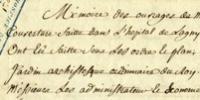 Mémoire des ouvrages de m
Couverture faitte dans L'hopital de Lagny
Ont Eté faitte sous Les ordre le plan
Jardin architecque ordinaire du Roy
Messieurs Les administrateur le Econom